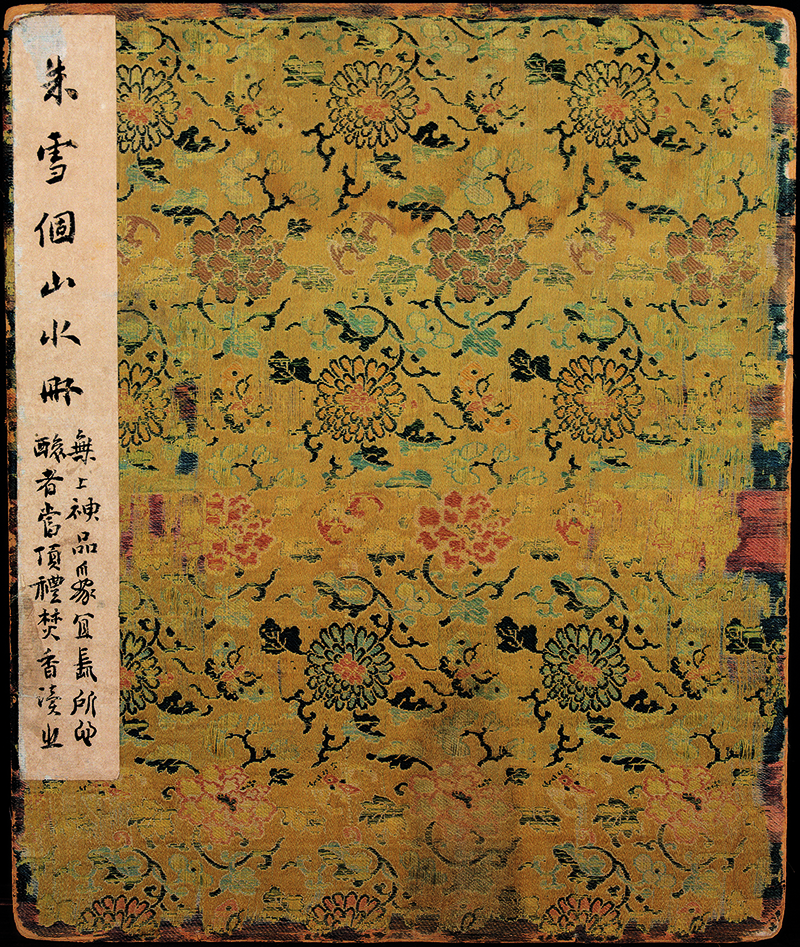 朱雪個山水冊
無上神品宜長所心
醉者當頂禮焚香讀之